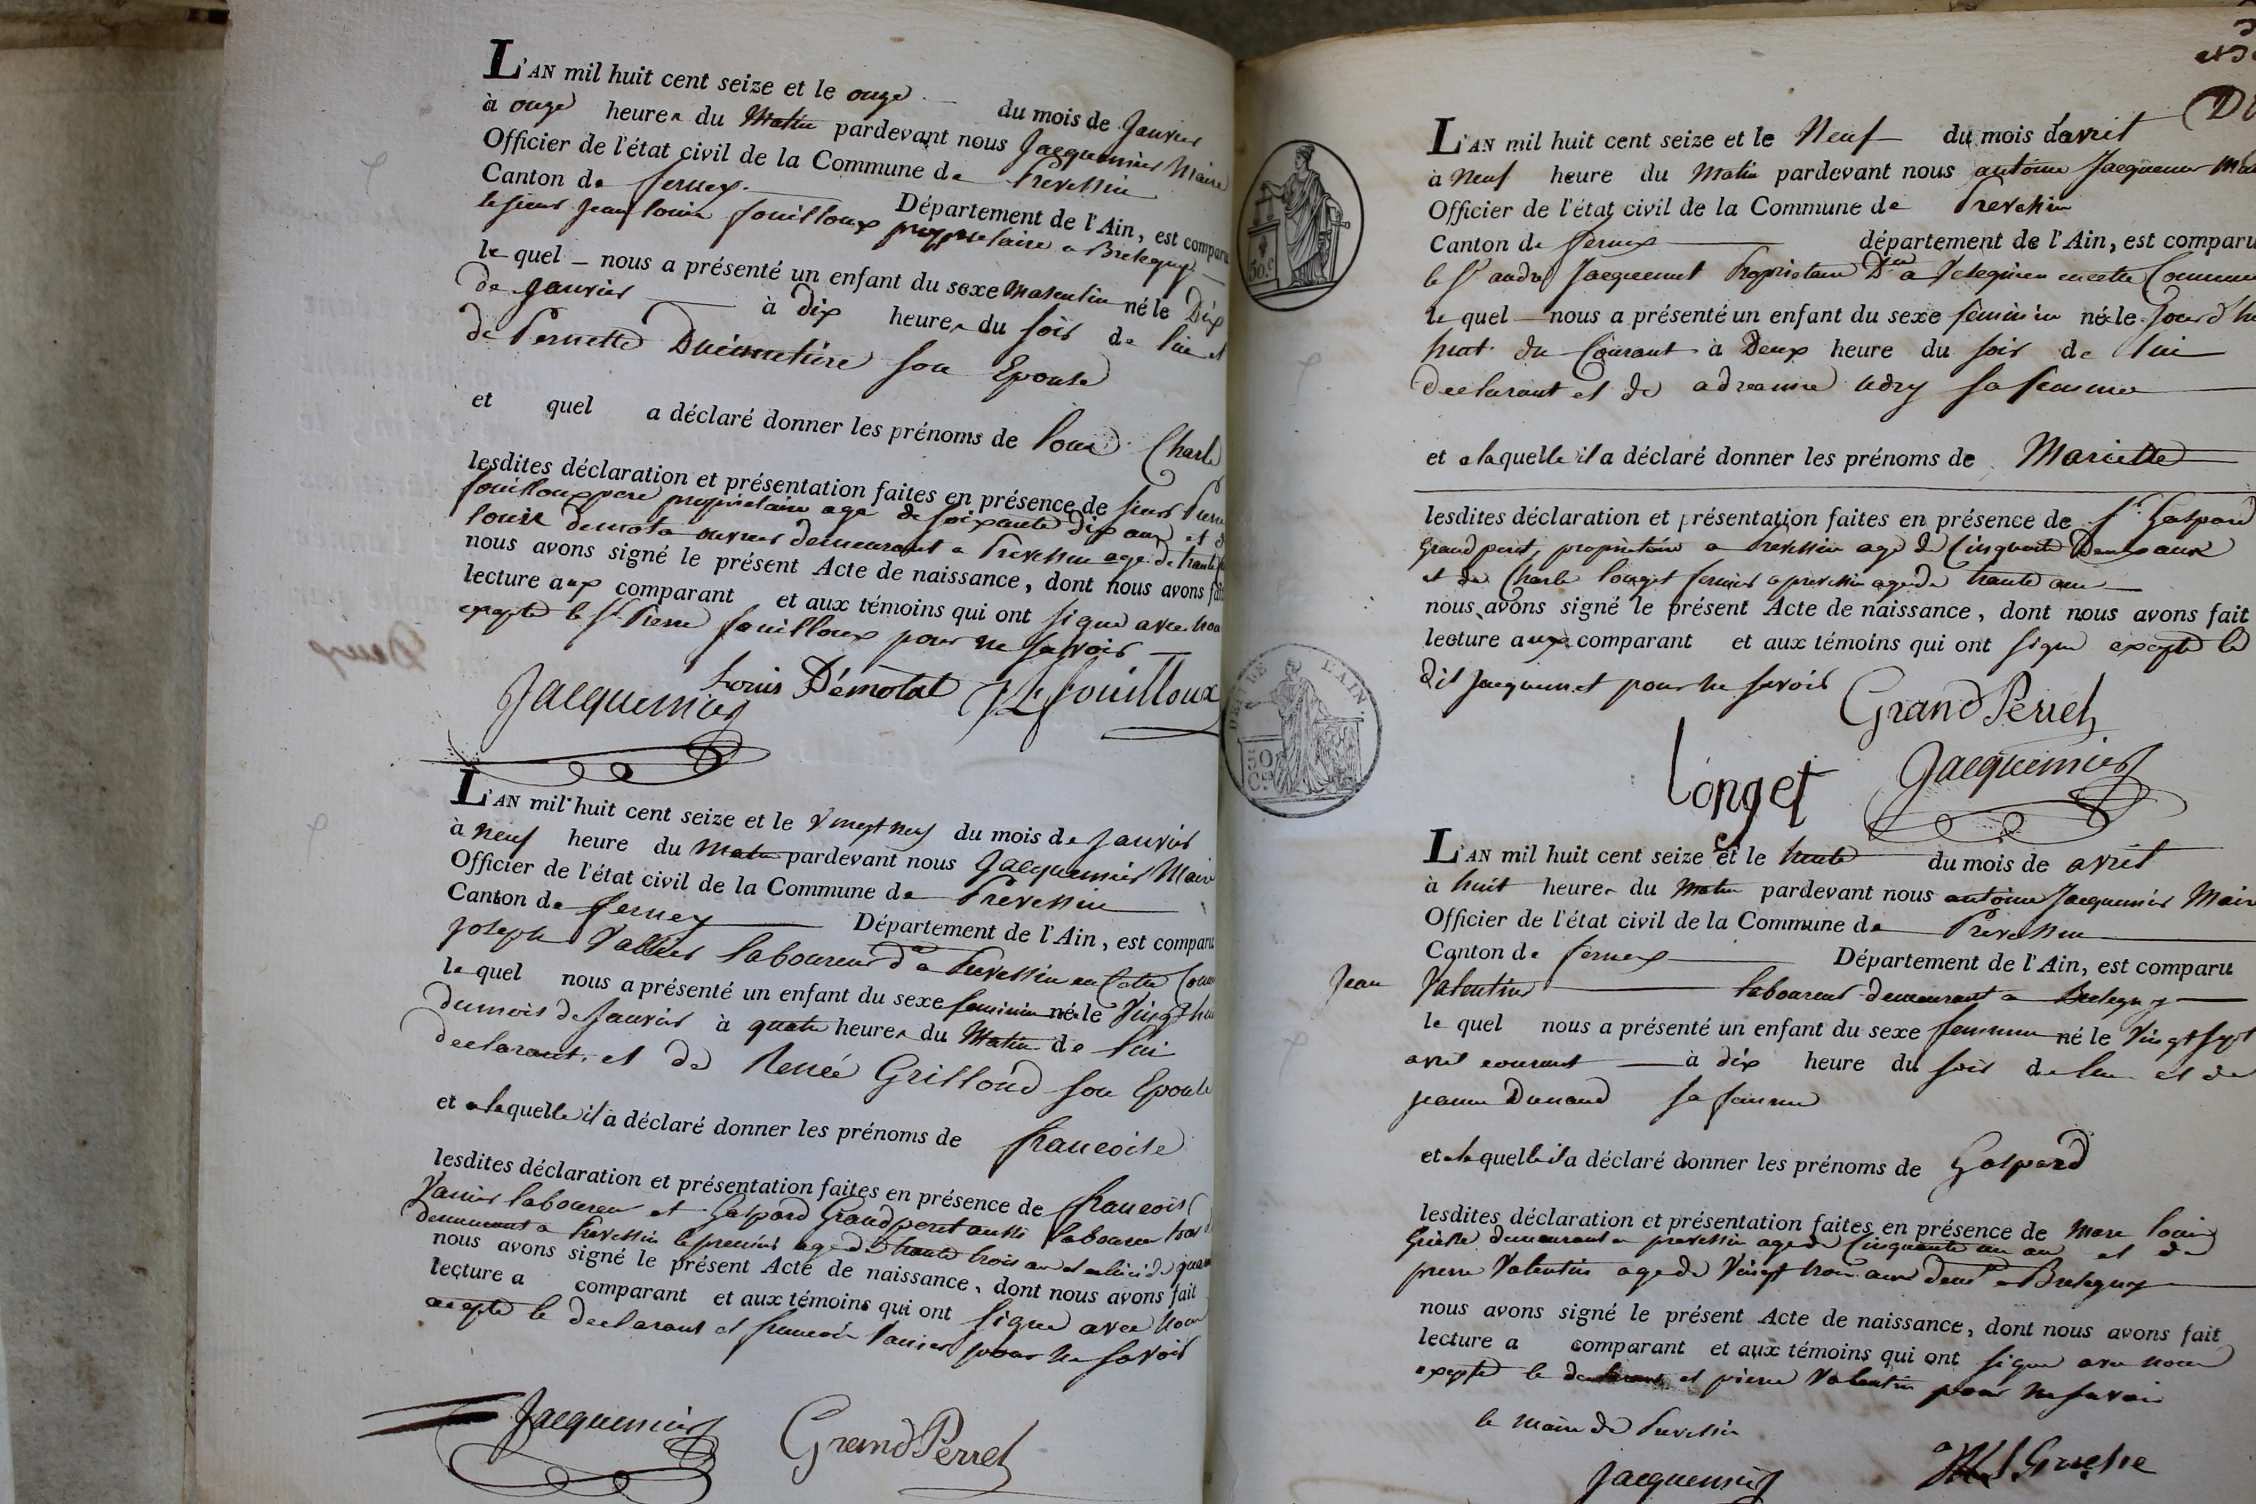 L'AN mil huit cent seize et le onze du mois de Janvier
à onze heures du Matin pardevant nous Jacquemier Maire
Officier de l'état civil de la Commune de Prevessin
Canton de ferney Département de l'Ain, est comparu
le sieur jean louis fouilloux proprietaire a Bretegny
le quel nous a présenté un enfant du sexe masculin né le Dix
de Janvier à dix heures du soir de lui et
de Pernette Ducimetière son Epouse
et quel a déclaré donner les prénoms de louis Charle
lesdites déclaration et présentation faites en présence de sieur Pierre
fouilloux pere proprietaire age de soixante dix ans et de
louis demota demeurant a Prevessin age de trente
nous avons signé le présent Acte de naissance, dont nous avons fait
lecture aux comparant et aux témoins qui ont signé avec nous
excepté le Sr Pierre fouilloux pour ne savoir
Louis Démotat
Jacquemier fouilloux
L'AN mil huit cent seize et le vingt neuf du mois de Janvier
à neuf heure du Matin pardevant nous Jacquemier Maire
Officier de l'état civil de la Commune de Prevessin
Canton de ferney Département de l'Ain, est comparu
joseph laboureur dt a Prevessin en Cette Comm
le quel nous a présenté un enfant du sexe feminin né le Vingt hui
du mois de Janvier à quatre heures du Matin de lui
declarant et de Renée Grilloud son Epouse
et a laquelle il a déclaré donner les prénoms de francoise
lesdites déclaration et présentation faites en présence de francois
laboureur et Gaspard Grandperret aussi laboureur
demeurant a Prevessin le premier age de trente trois ans et celui de quara
nous avons signé le présent Acte de naissance, dont nous avons fait
lecture a comparant et aux témoins qui ont signé avec nous
excepté le declarant et francois pour ne savoir
Jacquemier Grand Perret
L'AN mil huit cent seize et le Neuf du mois d'avril
à neuf heure du Matin pardevant nous antoine Jacquemier Mai
Officier de l'état civil de la Commune de Prevessin
Canton de ferney département de l'Ain, est comparu
le Sr andre Jacquemet Proprietaire Dt a en cette Commune
le quel nous a présenté un enfant du sexe feminin né le Jourd'hu
huit du Courant à Deux heure du soir de lui
declarant et de adrianne udry sa femme
et a laquelle il a déclaré donner les prénoms de Mariette
lesdites déclaration et présentation faites en présence de Sr Gaspard
Grandperret, proprietaire a Prevessin age de Cinquante Deux ans
et de Charle longet fermier a prevessin age de trente ans
nous avons signé le présent Acte de naissance, dont nous avons fait
lecture aux comparant et aux témoins qui ont signé excepté le
dit Jacquemet pour ne savoir
Grand Perret
Longet Jacquemier
L'AN mil huit cent seize et le trente du mois de avril
à huit heures du Matin pardevant nous antoine Jacquemier Mair
Officier de l'état civil de la Commune de Prevessin
Canton de ferney Département de l'Ain, est comparu
Jean Valentin laboureur demeurant a Bretegny
le quel nous a présenté un enfant du sexe feminin né le Vingt sept
avril courant à dix heure du soir de lui et de
jeanne Dunand sa femme
et a laquelle il a déclaré donner les prénoms de Gaspard
lesdites déclaration et présentation faites en présence de Marc louis
demeurant a prevessin age de Cinquante un an et de
pierre Valentin age de Vingt trois ans demt a Bretegny
nous avons signé le présent Acte de naissance, dont nous avons fait
lecture a comparant et aux témoins qui ont signé avec nous
excepté le declarant et pierre Valentin pour ne savoir
le maire de Prevessin
Jacquemier